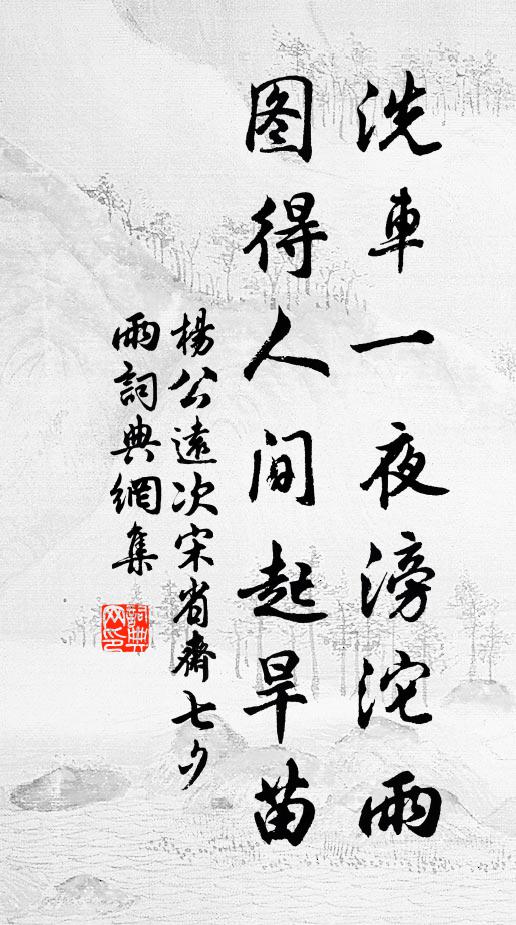 洗車一夜滂沱雨
图得人间起旱苗
楊公遠次宋省齋七夕
雨詞典網集
詞典
网印